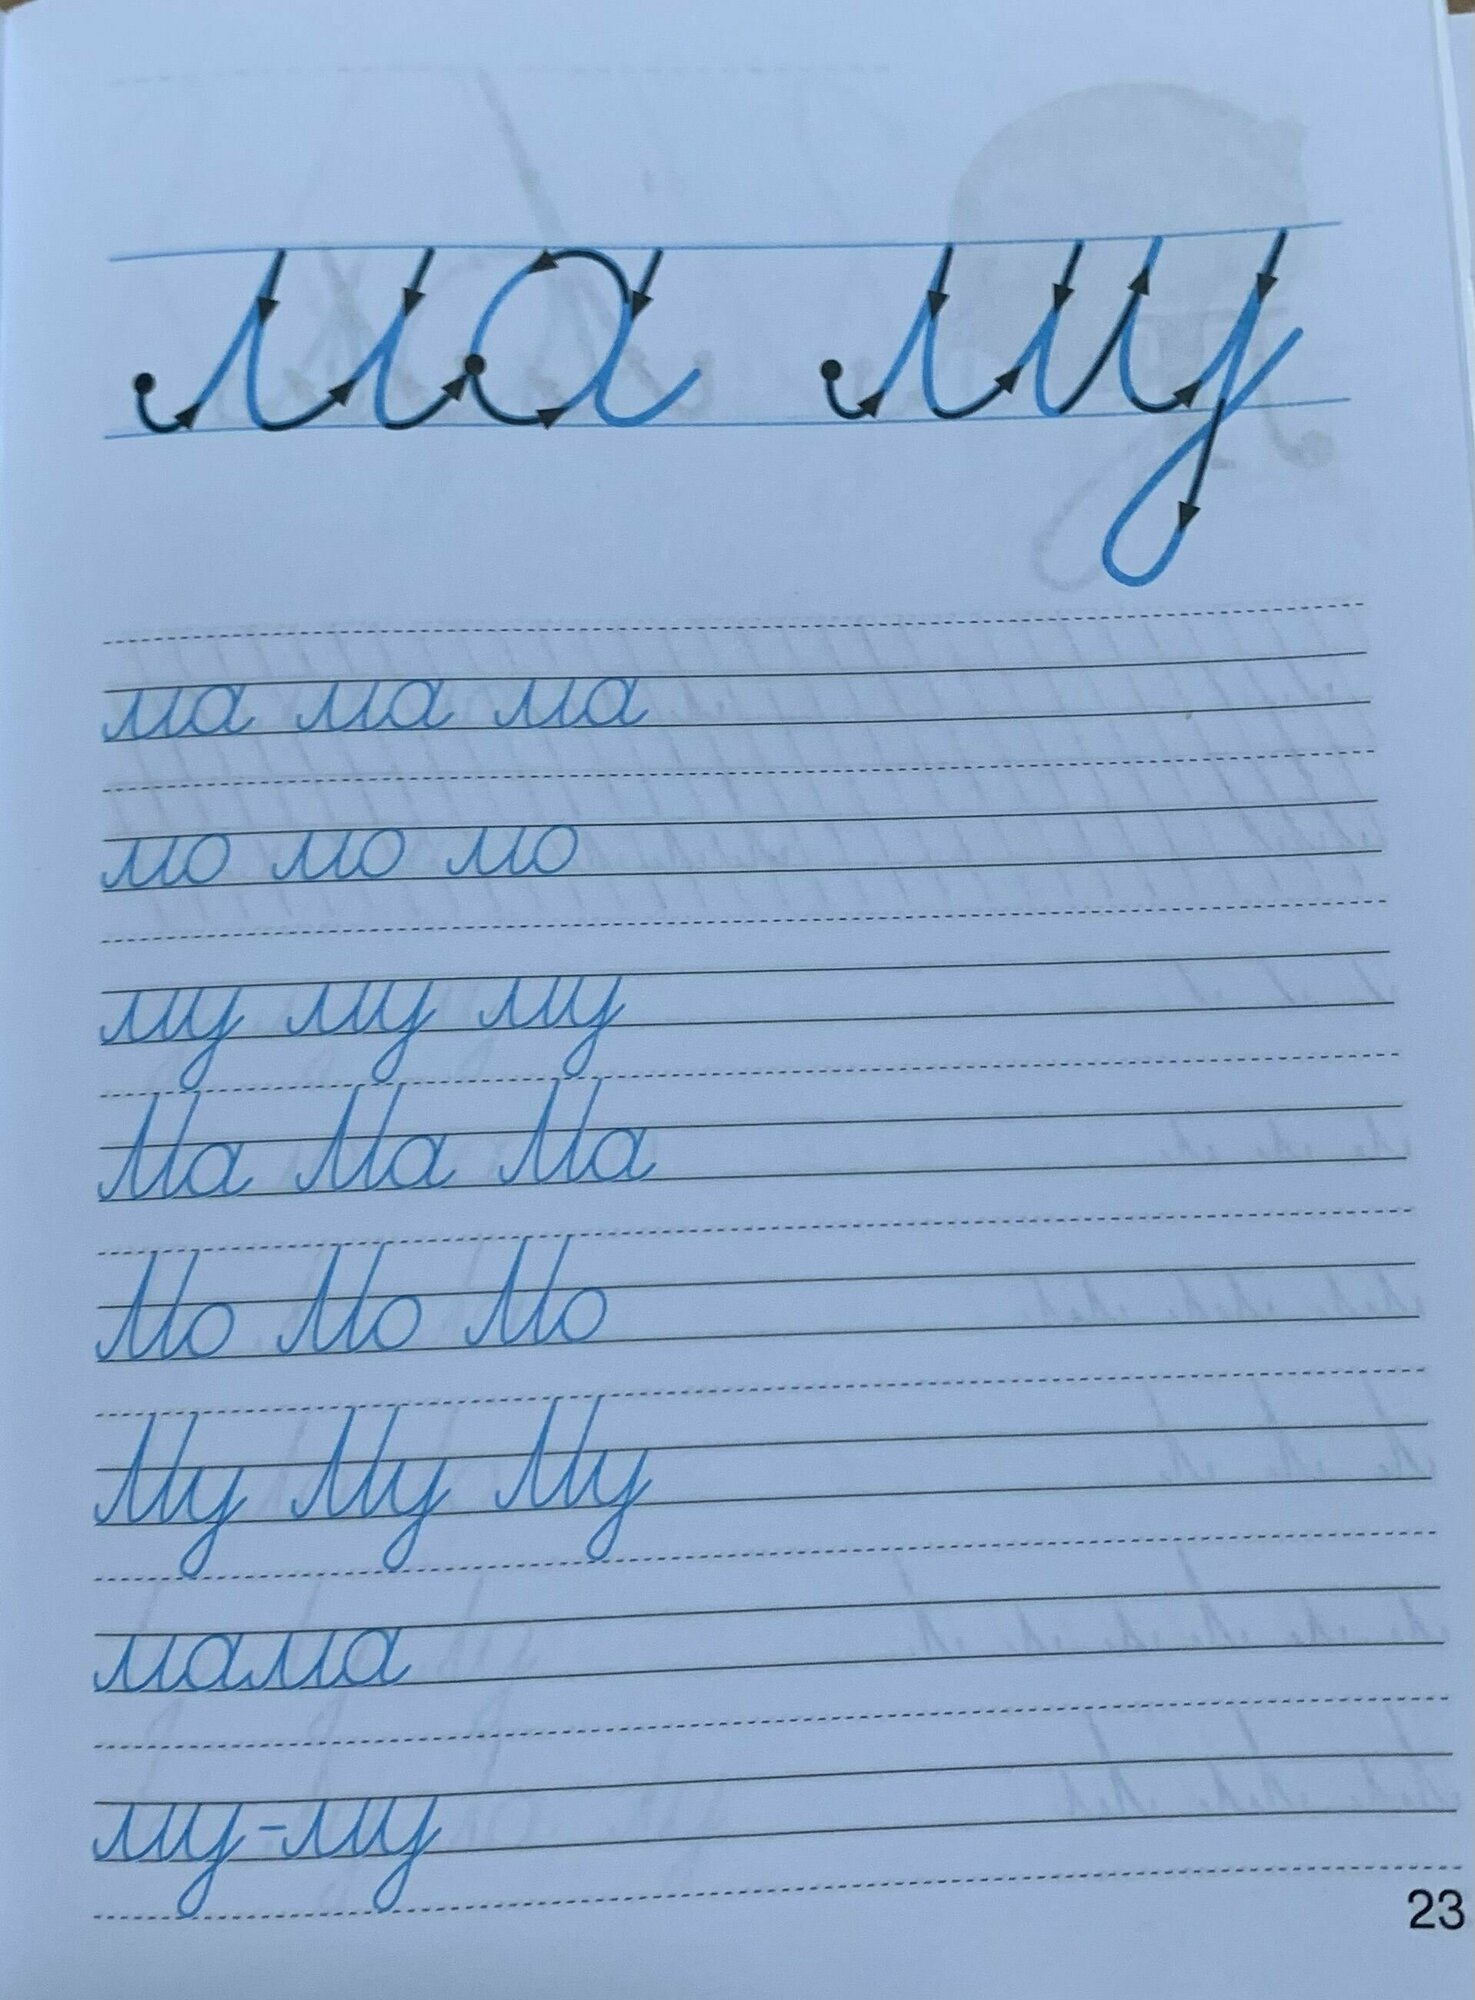 ма му
ма ма ма
мо мо мо
му му му
Ма Ма Ма
Мо Мо Мо
Му Му Му
мама
му-му
23